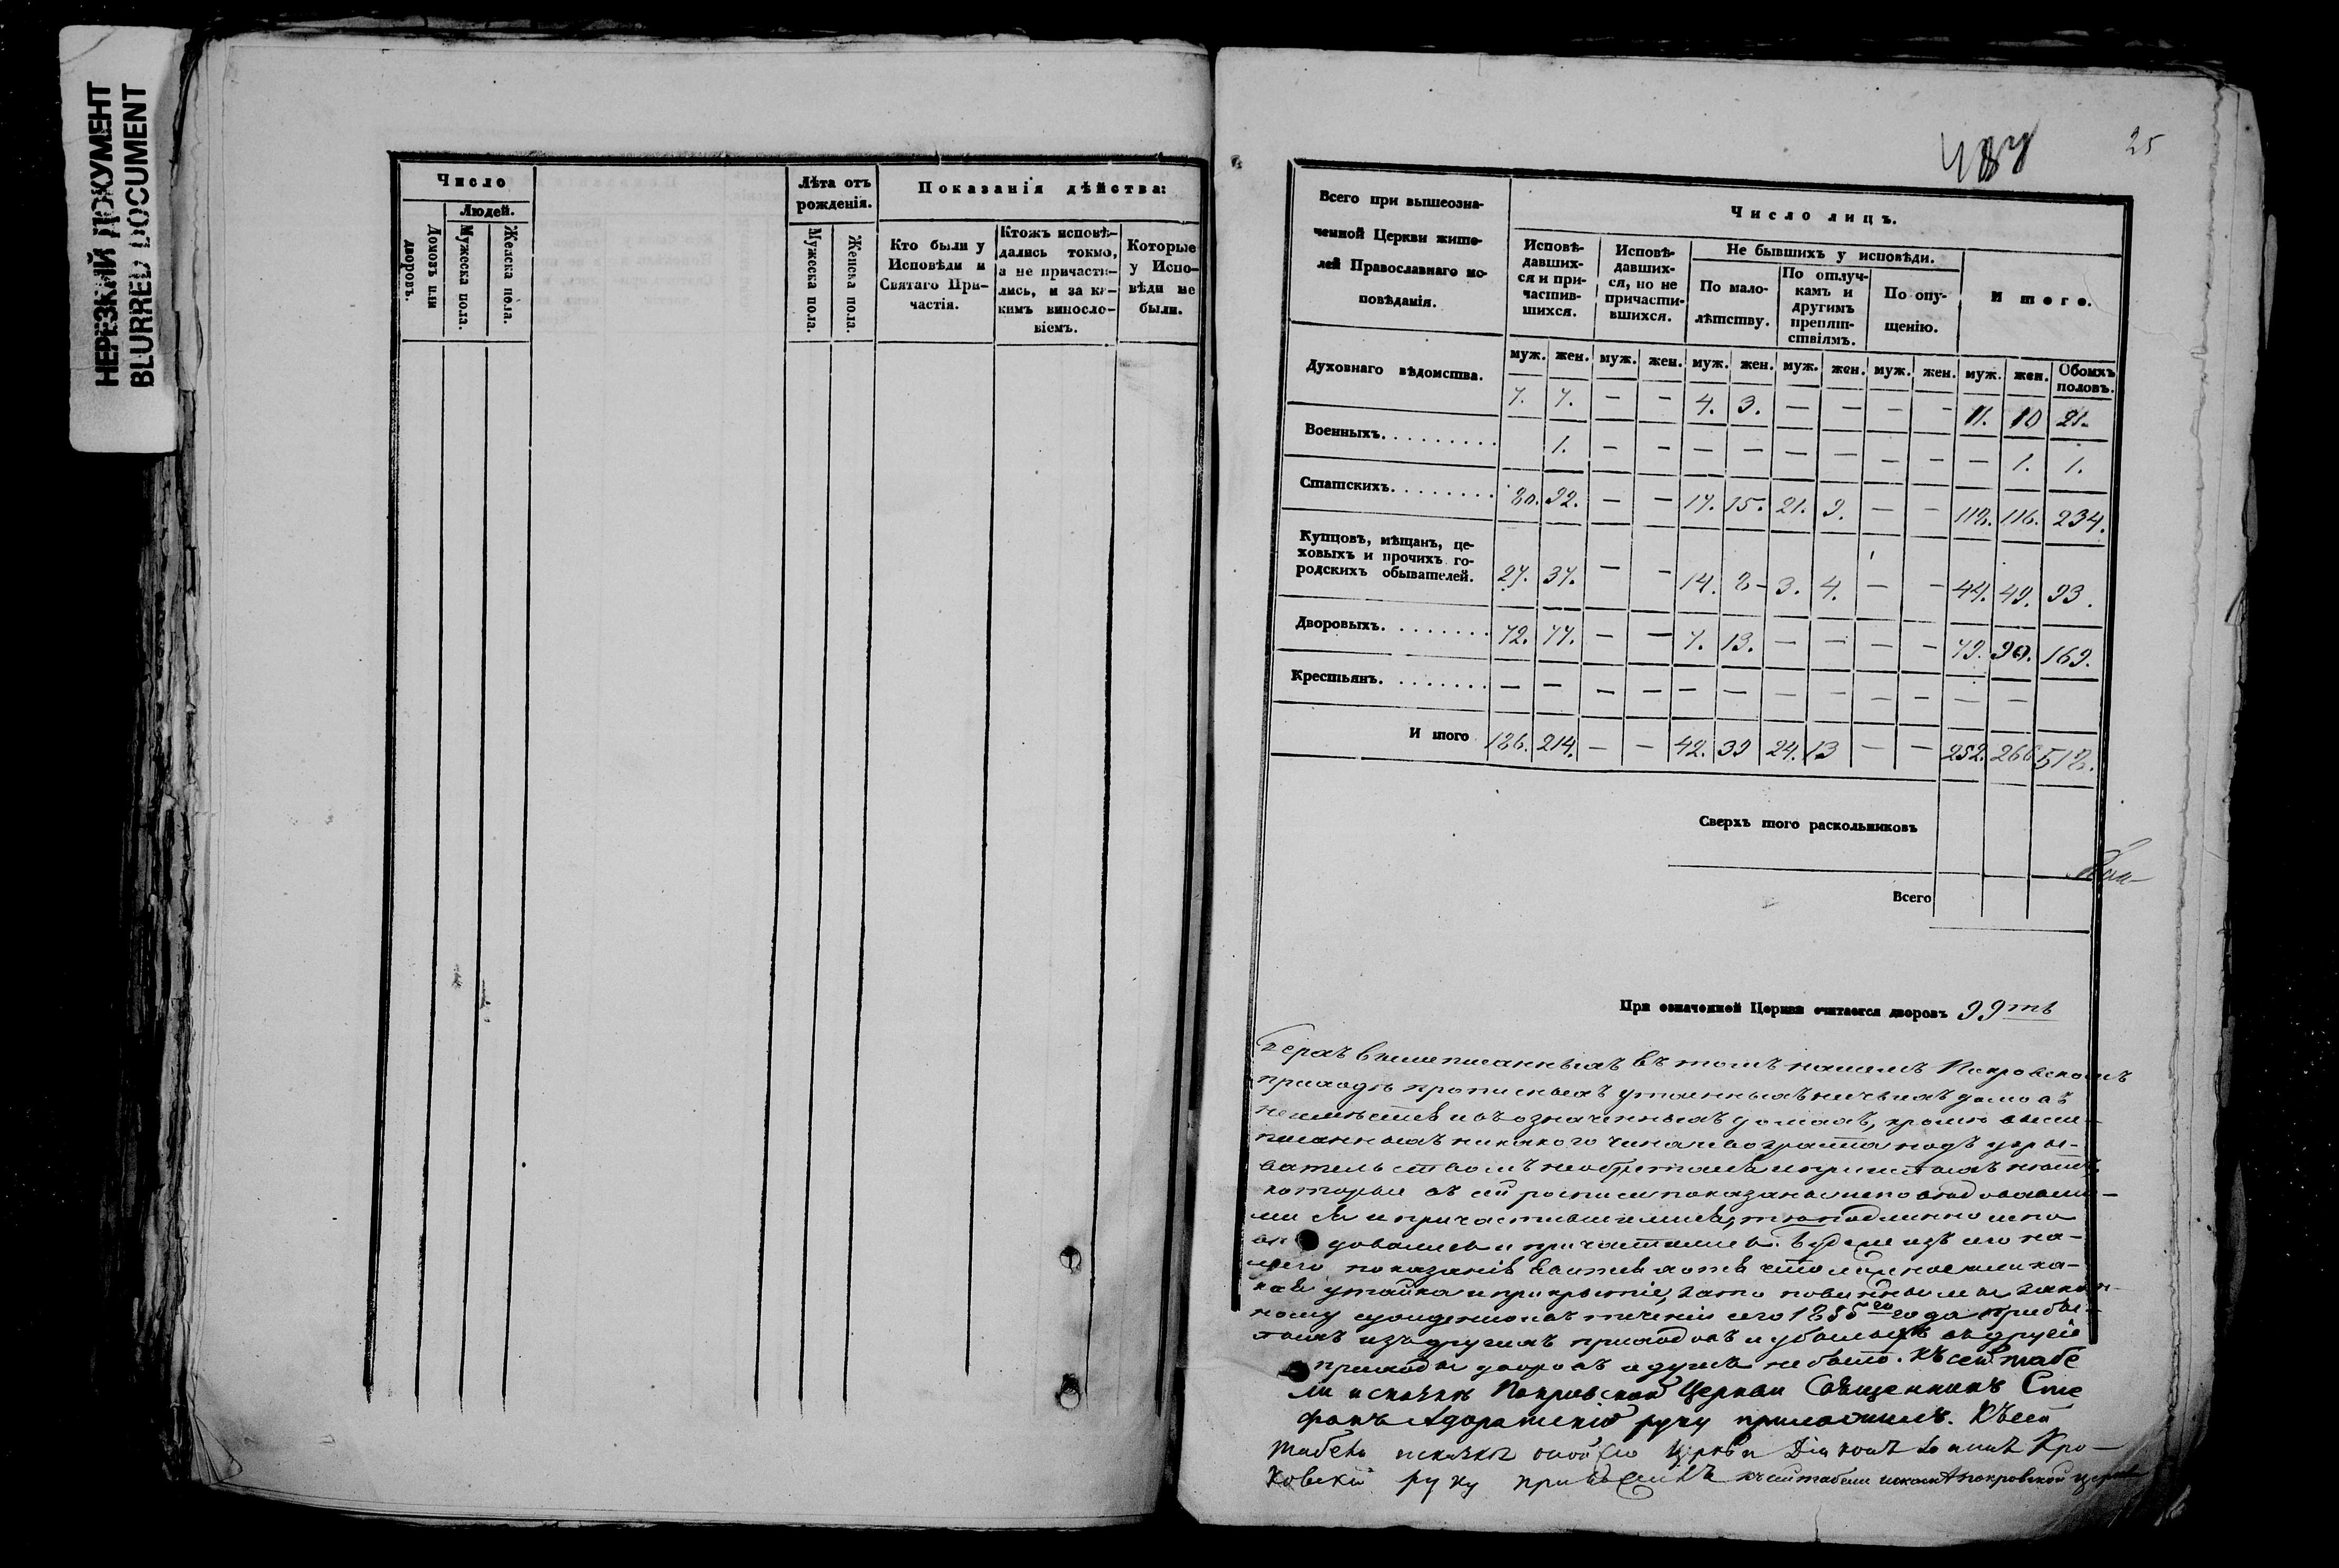 НЕРЕЗКИЙ ДОКУМЕНТ
BLURRED DOCUMENT
Число
Людей.
Домовъ или дворовъ.
Мужеска пола.
Женска пола.
Лѣта отъ
рожденія.
Мужеска пола.
Женска пола.
Показанія дѣйства:
Кто были у
Исповѣди и
Святаго При-
частія.
Ктожъ исповѣ-
дались токмо,
а не причасти-
лись, и за ка-
кимъ виносло-
віемъ.
Которые
у Испо-
вѣди не
были.
25
Всего при вышеозна-
ченной Церкви жите-
лей Православнаго ис-
повѣданія.
Число лицъ.
Исповѣ-
давших-
ся и при-
частив-
шихся.
Исповѣ-
давших-
ся, но не
причасти-
вшихся.
Не бывшихъ у исповѣди.
По мало-
лѣтству.
По отлуч-
камъ и
другимъ
препят-
ствіямъ.
По опу-
щенію.
И того.
муж. жен. муж. жен. муж. жен. муж. жен. муж. жен. муж. жен. Обоихъ половъ.
Духовнаго вѣдомства. 7. 7. — — 4. 3. — — — — 11. 10 21.
Военныхъ. 1. — — — — — — — — — 1. 1.
Статскихъ. 80. 92. — — 17. 15. 21. 9. — — 118. 116. 234.
Купцовъ, мѣщанъ, це-
ховыхъ и прочихъ го-
родскихъ обывателей. 27. 37. — — 14. 8 — 3. 4. — — 44. 49. 93.
Дворовыхъ. 72. 77. — — 7. 13. — — — — 79. 90. 169.
Крестьянъ. — — — — — — — — — — — —
И того 186. 214. — — 42. 39 24. 13 — — 252. 266 518.
Сверхъ того раскольниковъ
Всего
При означенной Церкви считается дворовъ 99ть
вышеписанныхъ въ томъ нашемъ Покровскомъ
приходѣ прописныхъ утаенныхъ ничьихъ домовъ
и въ означенныхъ домахъ, кромѣ выше-
писанныхъ никакого чина и возраста подъ укры-
вательствомъ
которые въ сей росписи показаны исповѣдовавши-
мися и причастившимися, тѣ подлинно испо
вѣдовались и причастились. Буде изъ сего на-
шего показанія явится хотя что ложное или ка-
кая утайка и прикрытіе, зато повинны мы закон-
ному сужденію въ теченіи сего 1855го года прибы-
лыхъ изъ другихъ приходовъ и убылыхъ въ другіе
приходы дворовъ и душъ не было. Къ сей табе
ли и сказкѣ Покровской Церкви Священникъ Сте
фанъ Адоратскій руку приложилъ. Къ сей
табели и сказкѣ оной же Церкви Діаконъ Іоаннъ Кро-
ковскій руку приложилъ къ сей табели и сказкѣ покровской церкви